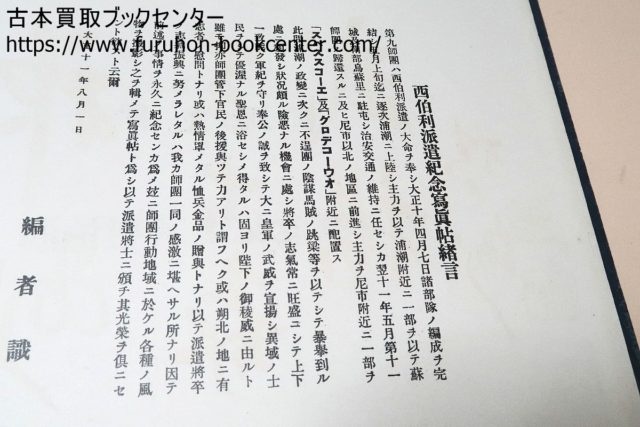 古本買取ブックセンター
https://www.furuhon-bookcenter.com/
西伯利派遣紀念寫眞帖緒言
第九師團ハ西伯利派遣ノ大命ヲ奉シ大正十年四月七日諸部隊ノ編成ヲ完
結シ月上旬迄ニ逐次浦潮ニ上陸シ主力ヲ以テ浦潮附近ニ一部ヲ以テ蘇
城及南部烏蘇里ニ駐屯シ治安交通ノ維持ニ任セシカ翌十一年五月第十一
師團歸還スルニ及ヒ尼市以北ノ地區ニ前進シ主力ヲ尼市附近ニ一部ヲ
「スパスコーエ」及「グロデコーウオ」附近ニ配置ス
此間浦潮ノ政變ニ次クニ不逞團ノ陰謀馬賊ノ跳梁等ヲ以テシテ暴擧到ル
處ニ發シ狀況頗ル險惡ナル機會ニ處シ將卒ノ志氣常ニ旺盛ニシテ上下
一致克ク軍紀ヲ守リ奉公ノ誠ヲ致シテ大ニ皇軍ノ武威ヲ宣揚シ異域ノ士
民ヲシテ優渥ナル聖恩ニ浴セシメ得タルハ固ヨリ陛下ノ御稜威ニ由ルト
雖モ亦師團管下官民ノ後援與ツテ力アリト謂フヘク或ハ朔北ノ地ニ有
患者ノ慰問トナリ或ハ熱情罩メタル恤兵金品ノ贈與トナリ以テ派遣將卒
志氣振興ニ努メラレタルハ我カ師團一同ノ感激ニ堪ヘサル所ナリ因テ
前述ノ事情ヲ永久ニ紀念センカ爲メ玆ニ師團行動地域ニ於ケル各種ノ風
物ヲ撮影シ之ヲ輯メテ寫眞帖ト爲シ以テ派遣將士ニ頒チ其光榮ヲ俱ニセ
ント欲スト云爾
大正十一年八月一日
編者識